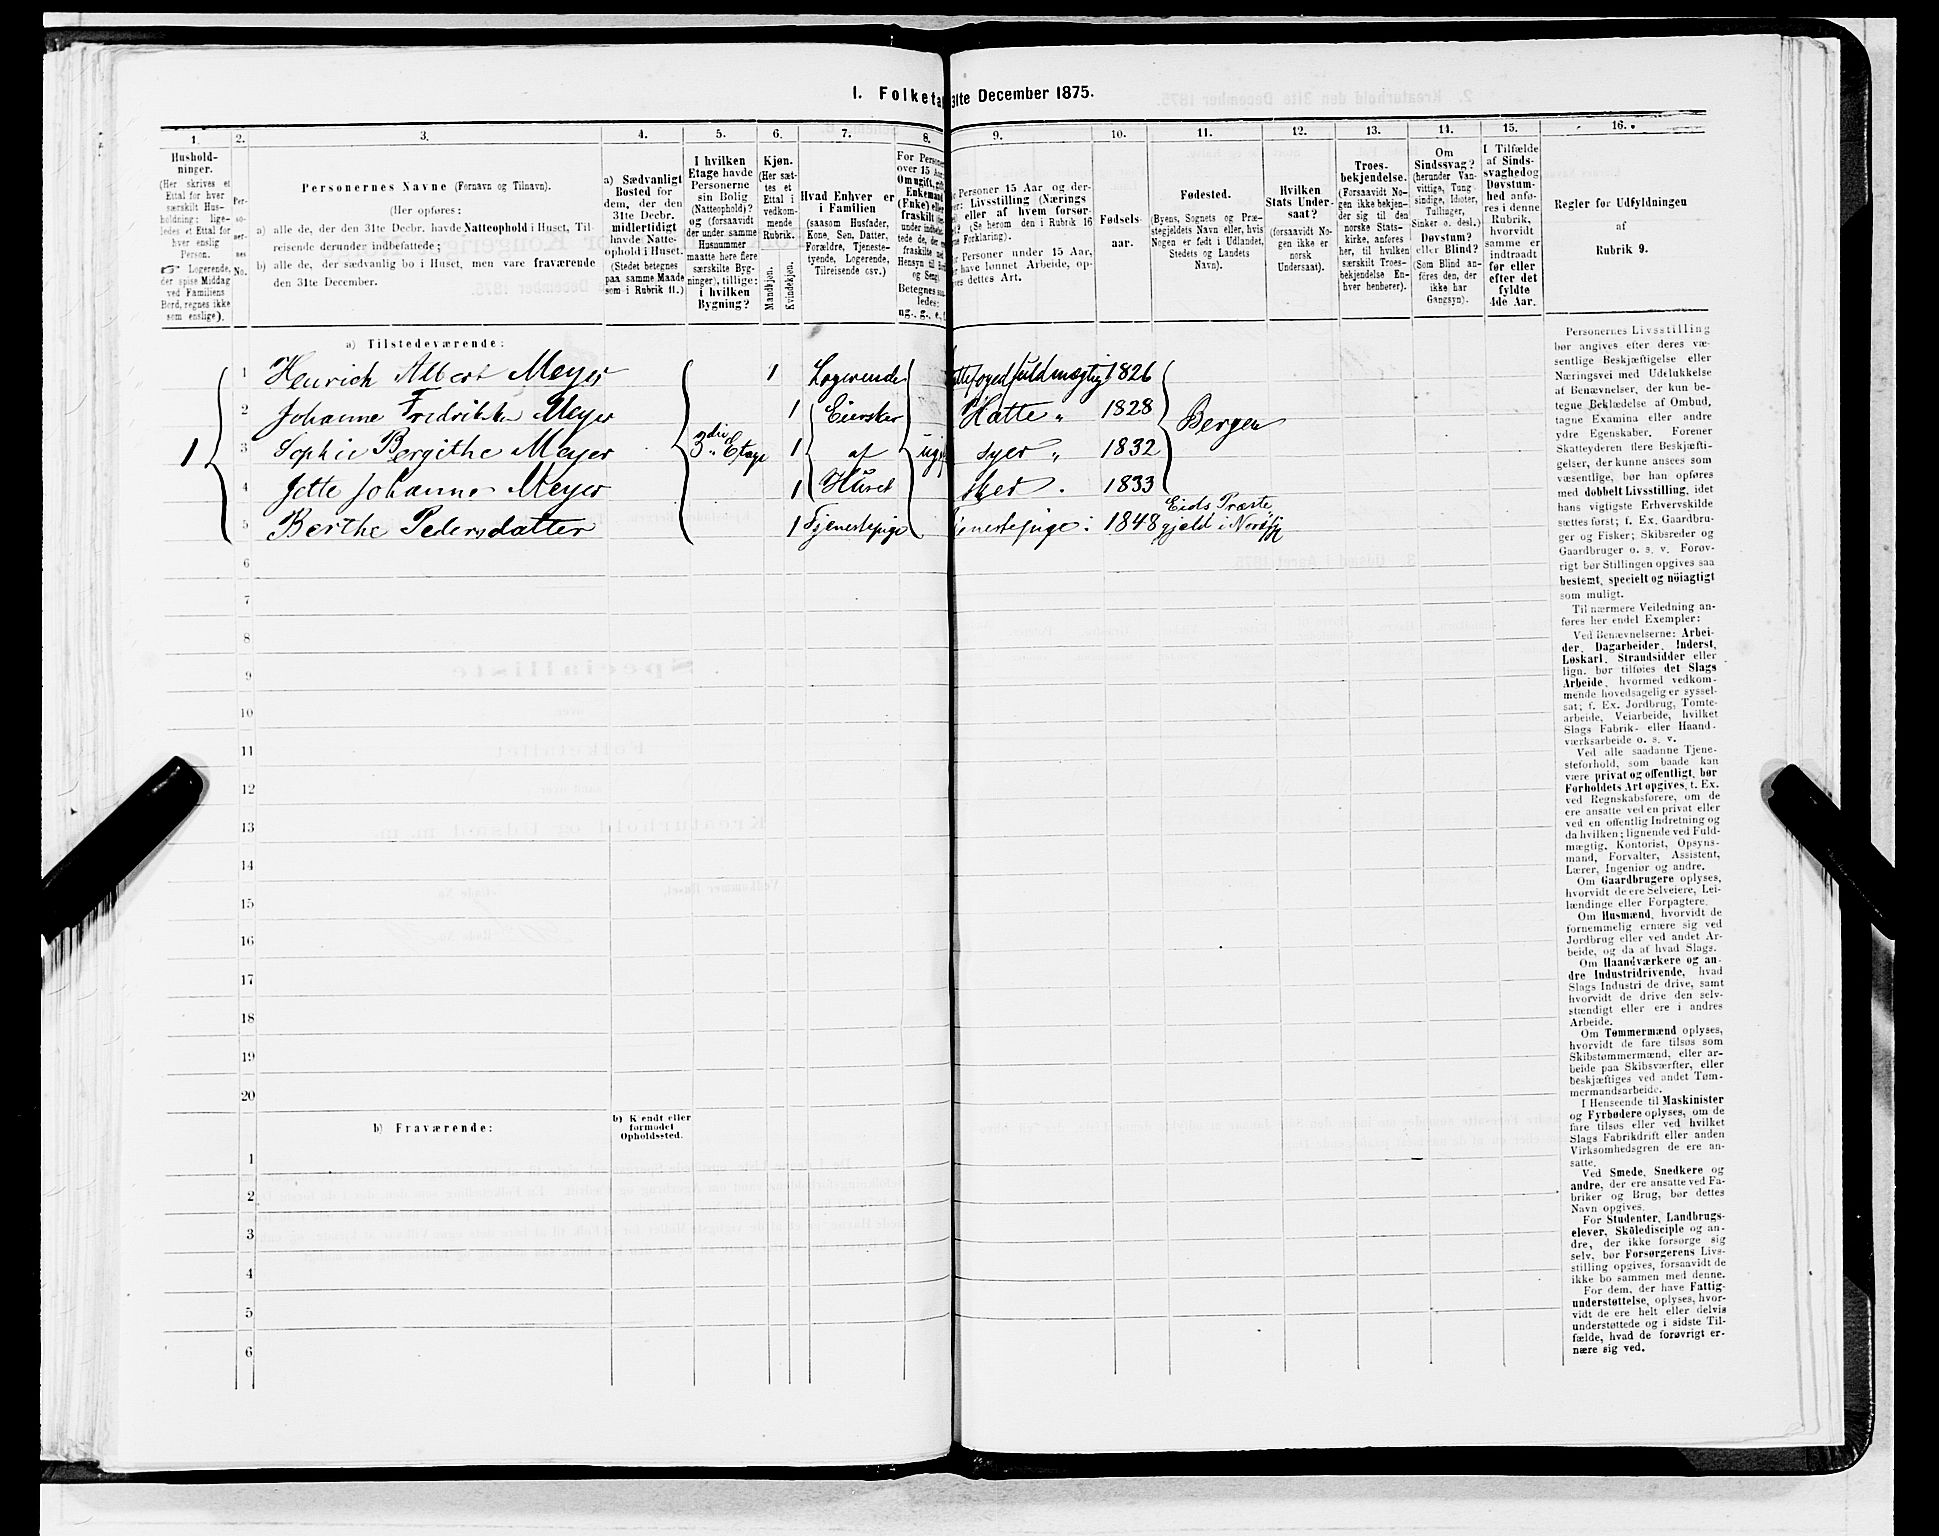 I. Folketa 31te December 1875.
1. 2. 3. 4. 5. 6. 7. 8. 9. 10. 11. 12. 13. 14. 15. 16.
Hushold-
ninger.
(Her skrives et
Ettal for hver
særskilt Hus-
holdning; lige-
ledes et Ettal for
hver enslig
Person.
☞ Logerende,
der spise Middag
ved Familiens
Bord, regnes ikke
som enslige).
Per-
so-
ner-
nes
No.
Personernes Navne (Fornavn og Tilnavn).
(Her opføres:
a) alle de, der den 31te Decbr. havde Natteophold i Huset, Til-
reisende derunder indbefattede;
b) alle de, der sædvanlig bo i Huset, men vare fraværende
den 31te December.
a) Sædvanligt
Bosted for
dem, der den
31te Decbr.
midlertidigt
havde Natte-
ophold i Huset.
(Stedet betegnes
paa samme Maade
som i Rubrik 11.)
I hvilken
Etage havde
Personerne
sin Bolig
(Natteophold)?
og (forsaavidt
der under samme
Husnummer
maatte høre flere
særskilte Byg-
ninger), tillige:
i hvilken
Bygning?
Kjøn.
(Her sæt-
tes et
Ettal i
vedkom-
mende
Rubrik.
Mandkjøn.
Kvindekjøn.
Hvad Enhver er
i Familien
(saasom Husfader,
Kone, Søn, Datter,
Forældre, Tjeneste-
tyende, Logerende,
Tilreisende osv.)
For Persone
over 15 Aar
Omugift, gift,
Enkemand
(Enke) elle
fraskilt
under indbefat-
tede de, der er
fraskilte med
Hensyn til Bord
og Seng).
Betegnes saa-
ledes:
ug., g., e., f.
r Personer 15 Aar og der-
er: Livsstilling (Nærings
eller af hvem forsør-
? (Se herom den i Rubrik 16
ne Forklaring).
r Personer under 15 Aar,
r have lønnet Arbeide, op-
ves dettes Art.
Fødsels-
aar.
Fødested.
(Byens, Sognets og Præ-
stegjeldets Navn eller, hvis
Nogen er født i Udlandet,
Stedets og Landets
Navn).
Hvilken
Stats Under-
saat?
(forsaavidt No-
gen ikke er
norsk
Undersaat).
Troes-
bekjendelse.
(Forsaavidt No-
gen ikke bekjen-
der sig til den
norske Stats-
kirke, anføres
her, til hvilken
særskilt Troes-
bekjendelse En-
hver henhører).
Om
Sindssvag?
(herunder Van-
vittige, Tung-
sindige, Idioter,
Tullinger,
Sinker o. desl.)
Døvstum?
eller Blind?
(Som Blind an-
føres den, der
ikke har
Gangsyn).
I Tilfælde
af Sinds-
svaghed og
Døvstum-
hed anfø-
res i denne
Rubrik,
hvorvidt
samme er
indtraadt
før eller
efter det
fyldte
4de Aar.
Regler for Udfyldningen
af
Rubrik 9.
a) Tilstedeværende:
1 Henrich Albert Meyer 1 Logerende fogedfuldmægtig 1826
2 Johanne Fredrikke Meyer 1 Eiersker Hatte „ 1828
1 3 Sophie Bergithe Meyer 3die Etage 1 af ug syer „ 1832 Bergen
4 Jette Johanne Meyer 1 Huset sker . 1833
5 Berthe Pedersdatter 1 Tjenestepige jenestepige : 1848 Eids Præste-
gjeld i Nordfj
6
7
8
9
10
11
12
13
14
15
16
17
18
19
20
b) Fraværende:
b) Kjendt eller
formodet
Opholdssted.
1
2
3
4
5
6
Personernes Livsstilling
bør angives efter deres væ-
sentlige Beskjæftigelse eller
Næringsvei med Udelukkelse
af Benævnelser, der kun be-
tegne Beklædelse af Ombud,
tagne Examina eller andre
ydre Egenskaber. Forener
Skatteyderen flere Beskjæfti-
gelser, der kunne ansees som
væsentlige, bør han opføres
med dobbelt Livsstilling, idet
hans vigtigste Erhvervskilde
sættes først; f. Ex. Gaardbru-
ger og Fisker; Skibsreder og
Gaardbruger o. s. v. Forøv-
rigt bør Stillingen opgives saa
bestemt, specielt og nöiagtigt
som muligt.
Til nærmere Veiledning an-
føres her endel Exempler:
Ved Benævnelserne: Arbei-
der, Dagarbeider, Inderst,
Løskarl, Strandsidder eller
lign. bør tilføies det Slags
Arbeide, hvormed vedkom-
mende hovedsagelig er syssel-
sat; f. Ex. Jordbrug, Tomte-
arbeide, Veiarbeide, hvilket
Slags Fabrik- eller Haand-
værksarbeide o. s. v.
Ved alle saadanne Tjene-
steforhold, som baade kan
være privat og offentligt, bør
Forholdets Art opgives, f. Ex.
ved Regnskabsførere, om de
ere ansatte ved en privat eller
ved en offentlig Indretning og
da hvilken; lignende ved Fuld-
mægtig, Kontorist, Opsyns-
mand, Forvalter, Assistent,
Lærer, Ingeniør og andre.
Om Gaardbrugere oplyses,
hvorvidt de ere Selveiere, Lei-
lændinge eller Forpagtere.
Om Husmænd, hvorvidt de
fornemmelig ernære sig ved
Jordbrug eller ved andet Ar-
beide, og da af hvad Slags.
Om Haandværkere og an-
dre Industridrivende, hvad
Slags Industri de drive, samt
hvorvidt de drive den selv-
stændigt eller ere i andres
Arbeide.
Om Tømmermænd oplyses,
hvorvidt de fare tilsøs som
Skibstømmermænd, eller ar-
beide paa Skibsværfter, eller
beskjæftiges ved andet Tøm-
mermandsarbeide.
I Henseende til Maskinister
og Fyrbødere oplyses, om de
fare tilsøs eller ved hvilket
Slags Fabrikdrift eller anden
Virksomhedsgren de ere an-
satte.
Ved Smede, Snedkere og
andre, der ere ansatte ved Fa-
briker og Brug, bør dettes
Navn opgives.
For Studenter, Landbrugs-
elever, Skoledisciple og an-
dre, der ikke forsørge sig
selv, bør Forsørgerens Livs-
stilling opgives, forsaavidt de
ikke bo sammen med denne.
For dem, der have Fattig-
understøttelse, oplyses, hvor-
vidt de ere helt eller delvis
understøttede og i sidste Til-
fælde, hvad de forøvrigt er-
nære sig ved.